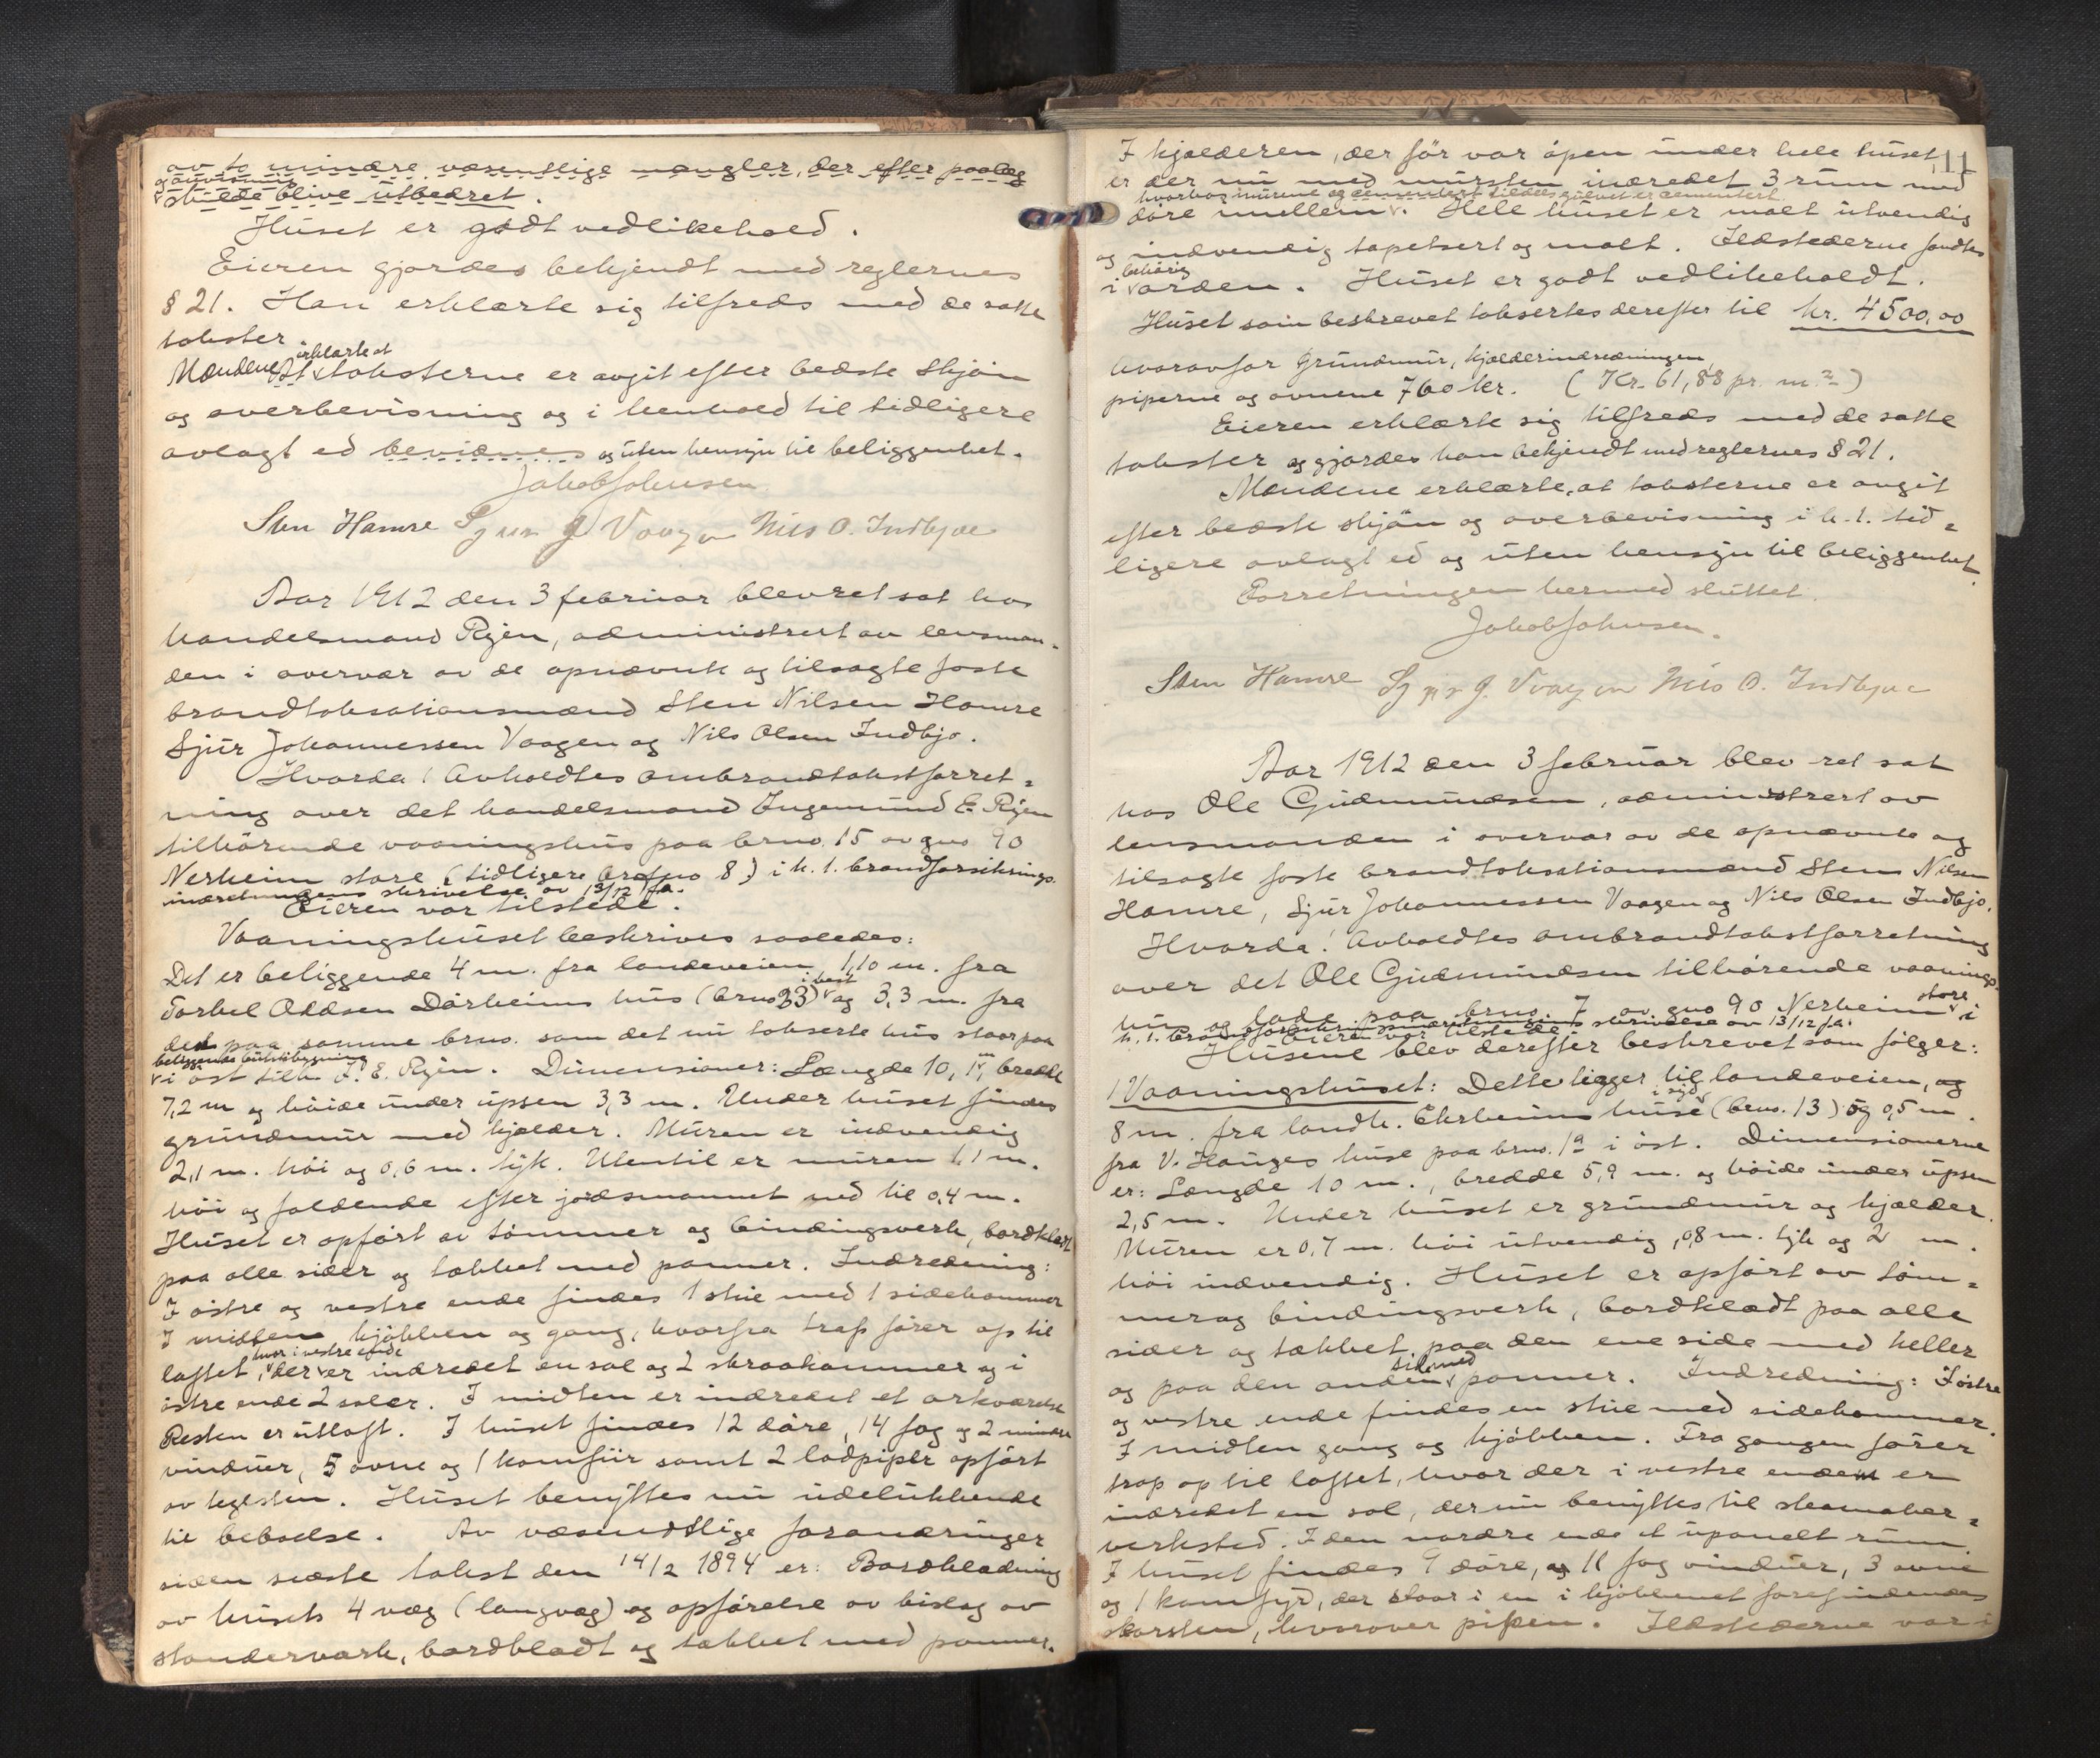 av to mindre væsentlige mangler, der efter paalæg
og anvisning
skulde blive utbedret.
Huset er godt vedlikehold.
Eieren gjordes bekjendt med reglernes
§ 21. Han erklærte sig tilfreds med de satte
takster.
erklærte at
Mændene taksterne er avgit efter bedste skjøn
og overbevisning og i henhold til tidligere
avlagt ed bevidnes og uten hensyn til beliggenhet.
Jakob Johnsen
Sten Hamre Sjur J Vaagen Nils O. Indbjoe
Aar 1912 den 3 februar blev ret sat hos
handelsmand Rjen, administrert av lensman-
den i overvær av de opnævnte og tilsagte faste
brandtakstationsmænd Sten Nilsen Hamre
Sjur Johannessen Vaagen og Nils Olsen Indbjo.
Hvorda! Avholdtes ombrandtakstforret-
ning over det handelsmand Ingemund E. Rjen
tilhørende vaaningshus paa brno. 15 av gno 90
Nesheim store (tidligere brno 8) i h. t. brandforsikrings-
indretningens skrivelse av 13/12 f.a.
Eieren var tilstede.
Vaaningshuset beskrives saaledes:
Det er beliggende 4 m. fra landeveien 1,10 m. fra
i vest
Torkel Oddsen Dørheims hus (brno 23) og 3,3 m. fra
det paa samme brno. som det nu takserte hus staar paa
beliggende butikbygning
i øst tilh. I. E. Rjen. Dimensioner: Længde 10,1 m, bredde
7,2 m og høide under upsen 3,3 m. Under huset findes
grundmur med kjælder. Muren er indvendig
2,1 m. høi og 0,6 m. tyk. Utentil er muren 1,1 m.
høi og faldende efter jordsmonnet ned til 0,4 m.
Huset er opført av tømmer og bindingsverk, bordklædt
paa alle sider og tækket med panner. Indredning:
I østre og vestre ende findes 1 stue med 1 sidekammer
I midten kjøkken og gang, hvorfra trap fører op til
hvor i vestre ende
loftet, der er indredet en sal og 2 skraakammer og i
østre ende 2 saler. I midten er indredet et arkværelse
Resten er utloft. I huset findes 12 døre, 14 fag og 2 mindre
vinduer, 5 ovne og 1 komfur samt 2 lodpiper opført
av teglsten. Huset benyttes nu udelukkende
til beboelse. Av væsendtlige forandringer
siden sidste takst den 14/2 1894 er: Bordklædning
av husets 4 væg (langvæg) og opførelse av bislag av
standerværk, bordklædt og tækket med panner.
11
I kjælderen, der før var åpen under hele huset,
er der nu med mursten indredet 3 rum med
hvorhos murene og cementert tildels gulvet er cementert
døre mellem. Hele huset er malt utvendig
og indvendig tapetsert og malt. Ildstederne fandtes
behørig
i orden. Huset er godt vedlikeholdt.
Huset som beskrevet taksertes derefter til kr. 4500,00
hvoravfor Grundmur, kjælderindredningen,
piperne og ovnene 760 kr. (Kr. 61,88 pr. m.²)
Eieren erklærte sig tilfreds med de satte
takster og gjordes han bekjendt med reglernes § 21.
Mændene erklærte, at taksterne er avgit
efter bedste skjøn og overbevisning i h. t. tid-
ligere avlagt ed og uten hensyn til beliggenhet.
Forretningen hermed sluttet.
Jakob Johnsen.
Sten Hamre Sjur J. Vaagen Nils O. Indbjoe
Aar 1912 den 3 februar blev ret sat
hos Ole Gudmundsen, administrert av
lensmanden i overvær av de opnævnte og
tilsagte faste brandtakstationsmænd Sten Nilsen
Hamre, Sjur Johannessen Vaagen og Nils Olsen Indbjo.
Hvorda! Avholdtes ombrandtakstforretning
over det Ole Gudmundsen tilhørende vaanings-
store
hus og lade paa brno. 7 av gno 90 Nesheim i
h. t. brandforsikringsindretningens skrivelse av 13/12 f.a.
Eieren var tilstede.
Husene blev derefter beskrevet som følger:
1 Vaaningshuset: Dette ligger til landeveien, og
i syd
8 m. fra landh. Ekrheims huse (brno. 13) og 0,5 m.
fra V. Hauges huse paa brno. 1a i øst. Dimensionerne
er: Længde 10 m., bredde 5,9 m. og høide under upsen
2,5 m. Under huset er grundmur og kjælder.
Muren er 0,7 m. høi utvendig, 0,8 m. tyk og 2 m.
høi indvendig. Huset er opført av tøm-
mer og bindingsverk, bordklædt paa alle
sider og tækket paa den ene side med heller
side med
og paa den anden panner. Indredning: I østre
og vestre ende findes en stue med sidekammer.
I midten gang og kjøkken. Fra gangen fører
trap op til loftet, hvor der i vestre ende er
indredet en sal, der nu benyttes til skomaker-
verksted. I den nordre ende et upanelt rum.
I huset findes 9 døre, og 11 fag vinduer, 3 ovne
og 1 komfyr, der staar i en i kjøkkenet forefindendes
skorsten, hvorover pipen. Ildstederne var i